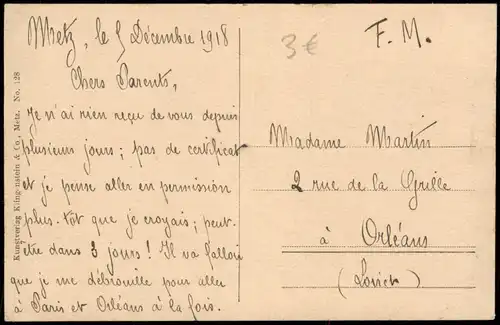 Metz, le 5 Décembre 1918
Chers Parents,
Je n'ai rien reçu de vous depuis
plusieurs jours ; pas de certificat
et je pense aller en permission
plus-tôt que je croyais ; peut-
être dans 3 jours ! Il va falloir
que je me débrouille pour aller
à Paris et Orléans à la fois.
3€
F. M.
Madame Martin
2 rue de la Grille
à Orléans
(Loiret)
Kunstverlag Klingenstein & Co., Metz. No. 128